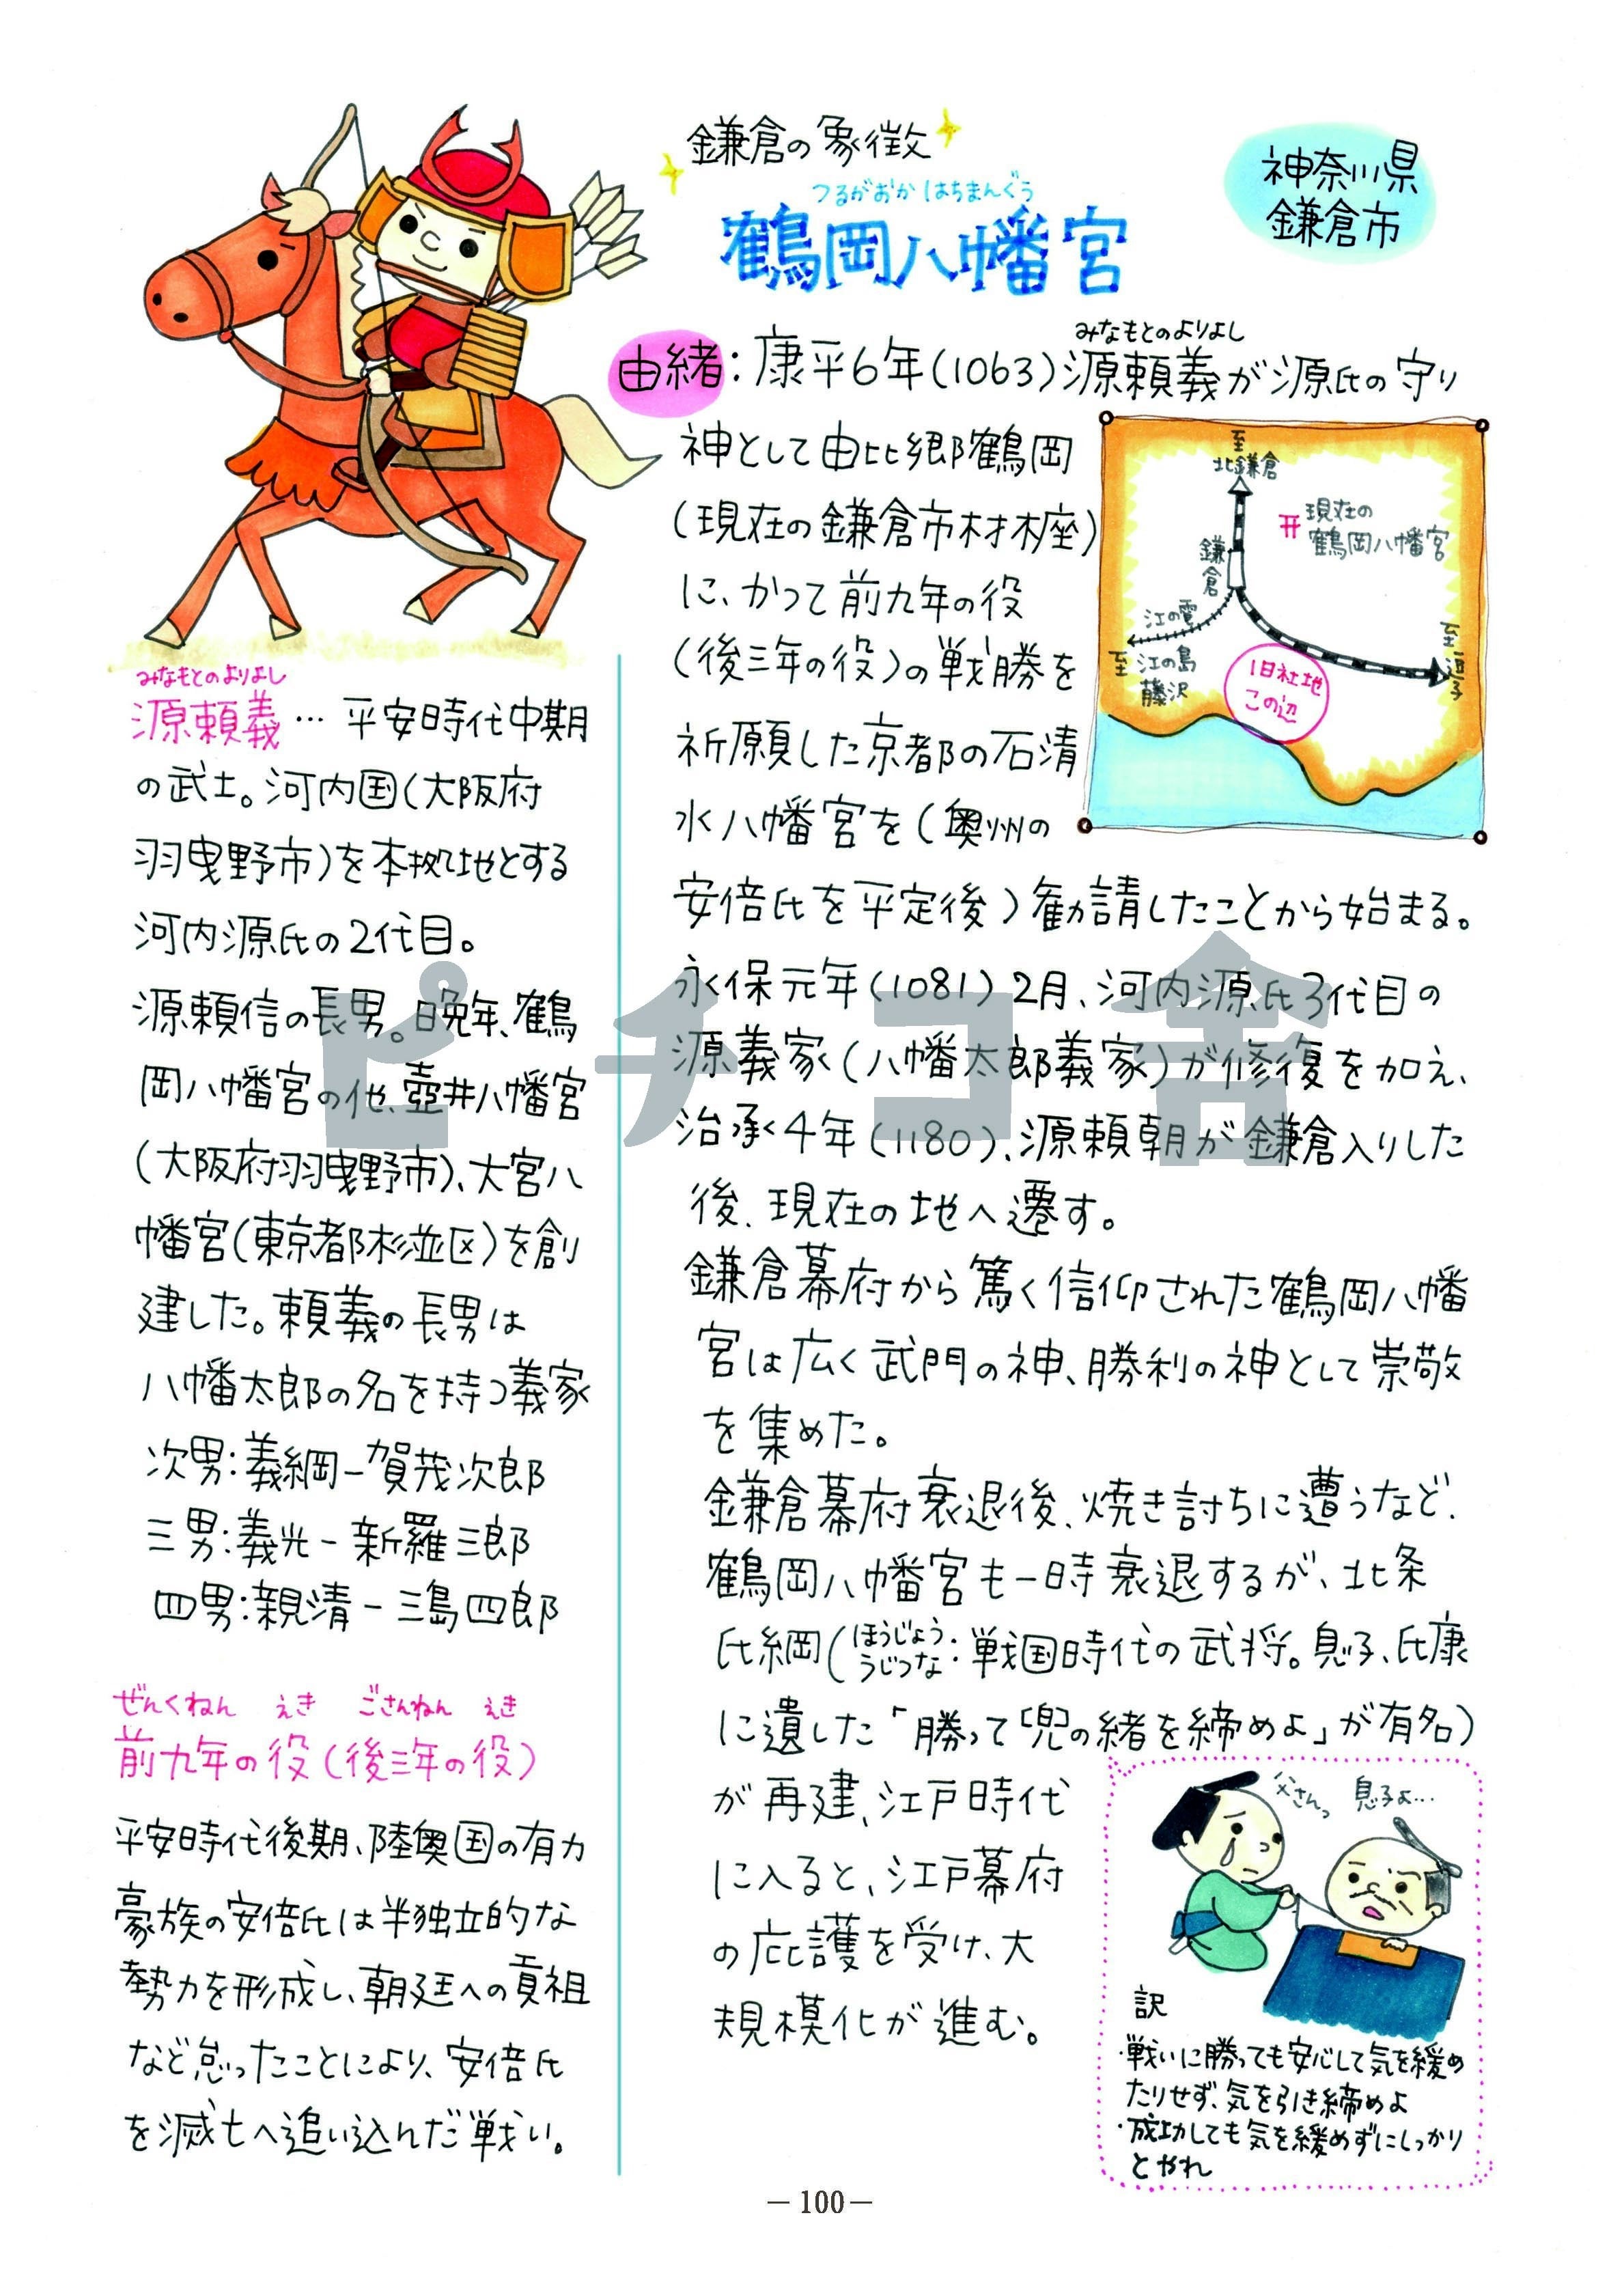 鎌倉の象徴
つるがおか はちまんぐう
鶴岡八幡宮
神奈川県
鎌倉市
みなもとのよりよし
由緒：康平6年(1063)源頼義が源氏の守り
神として由比郷鶴岡
(現在の鎌倉市材木座)
に、かつて前九年の役
(後三年の役)の戦勝を
祈願した京都の石清
水八幡宮を(奥州の
安倍氏を平定後)勧請したことから始まる。
永保元年(1081)2月、河内源氏3代目の
源義家(八幡太郎義家)が修復を加え、
治承4年(1180)、源頼朝が鎌倉入りした
後、現在の地へ遷す。
鎌倉幕府から篤く信仰された鶴岡八幡
宮は広く武門の神、勝利の神として崇敬
を集めた。
鎌倉幕府衰退後、焼き討ちに遭うなど、
鶴岡八幡宮も一時衰退するが、北条
氏綱(ほうじょううじつな：戦国時代の武将。息子、氏康
に遺した「勝って兜の緒を締めよ」が有名)
が再建、江戸時代
に入ると、江戸幕府
の庇護を受け、大
規模化が進む。
至
北鎌倉
现在の
鶴岡八幡宮
鎌倉
江の電
至
江の島
藤沢
至
逗子
旧社地
この辺
みなもとのよりよし
源頼義…平安時代中期
の武士。河内国(大阪府
羽曳野市)を本拠地とする
河内源氏の2代目。
源頼信の長男。晩年、鶴
岡八幡宮の他、壺井八幡宮
(大阪府羽曳野市)、大宮八
幡宮(東京都杉並区)を創
建した。頼義の長男は
八幡太郎の名を持つ義家
次男：義綱－賀茂次郎
三男：義光－新羅三郎
四男：親清－三島四郎
ぜんくねん えき ごさんねん えき
前九年の役(後三年の役)
平安時代後期、陸奥国の有力
豪族の安倍氏は半独立的な
勢力を形成し、朝廷への貢祖
など怠ったことにより、安倍氏
を滅亡へ追い込んだ戦い。
父さんっ
息子よ…
訳
・戦いに勝っても安心して気を緩め
たりせず、気を引き締めよ
・成功しても気を緩めずにしっかり
とやれ
ピチコ舎
－100－